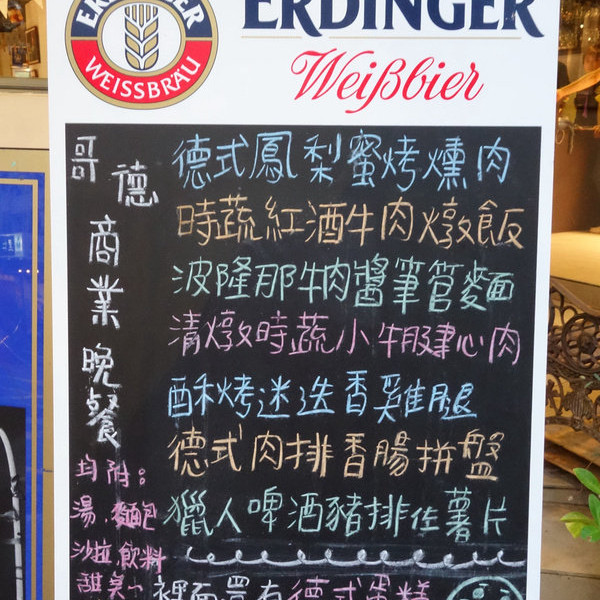 ERDINGER
WEISSBRÄU
ERDINGER
Weißbier
哥德
商業晚餐
均附：
湯．麵包
沙拉．飲料
甜美
德式鳳梨蜜烤燻肉
時蔬紅酒牛肉燉飯
波隆那牛肉醬筆管麵
清燉時蔬小牛腱心肉
酥烤迷迭香雞腿
德式肉排香腸拼盤
獵人啤酒豬排佐薯片
裡面還有德式蛋糕